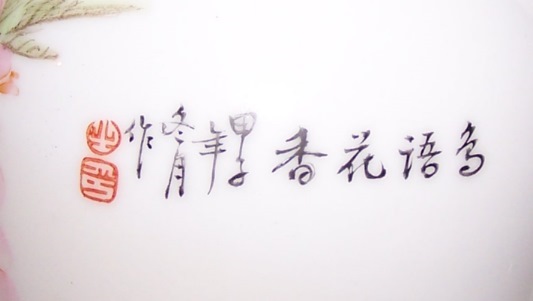 鸟语花香 甲子年 冬月 作